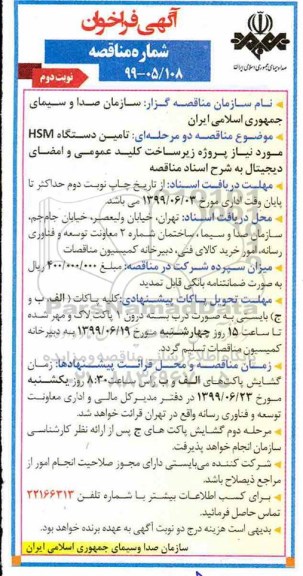 آگهی فراخوان
شماره مناقصه
۹۹-۰۵/۱۰۸
نوبت دوم
صدا و سیمای جمهوری اسلامی ایران
نام سازمان مناقصه گزار: سازمان صدا و سیمای
جمهوری اسلامی ایران
موضوع مناقصه دو مرحله‌ای: تامین دستگاه HSM
مورد نیاز پروژه زیرساخت کلید عمومی و امضای
دیجیتال به شرح اسناد مناقصه
مهلت دریافت اسناد: از تاریخ چاپ نوبت دوم حداکثر تا
پایان وقت اداری مورخ ۱۳۹۹/۰۶/۰۳ می باشد.
محل دریافت اسناد: تهران، خیابان ولیعصر، خیابان جام‌جم،
سازمان صدا و سیما، ساختمان شماره ۲ معاونت توسعه و فناوری
رسانه، امور خرید کالای فنی، دبیرخانه کمیسیون مناقصات
میزان سپرده شرکت در مناقصه: مبلغ ۴۰۰/۰۰۰/۰۰۰ ریال
به صورت ضمانتنامه بانکی قابل تمدید
مهلت تحویل پاکات پیشنهادی: کلیه پاکات (الف ب و
ج) بایستی به صورت درب بسته درون ۱ پاکت لاک و مهر شده
تا ساعت ۱۵ روز چهارشنبه مورخ ۱۳۹۹/۰۶/۱۹ به دبیرخانه
کمیسیون مناقصات تسلیم گردد.
زمان مناقصه و محل قرائت پیشنهادها: زمان
گشایش پاکت‌های الف و ب ساعت ۸:۳۰ روز یکشنبه
مورخ ۱۳۹۹/۰۶/۲۳ در دفتر مدیرکل مالی و اداری معاونت
توسعه و فناوری رسانه واقع در تهران قرائت خواهد شد.
مرحله دوم گشایش پاکت های ج پس از ارائه نظر کارشناسی
سازمان انجام خواهد پذیرفت.
شرکت کننده می‌بایستی دارای مجوز صلاحیت انجام امور از
مراجع ذیصلاح باشد.
برای کسب اطلاعات بیشتر با شماره تلفن ۲۲۱۶۶۳۱۳
تماس حاصل فرمائید.
بدیهی است هزینه درج دو نوبت آگهی به عهده برنده خواهد بود.
سازمان صدا وسیمای جمهوری اسلامی ایران